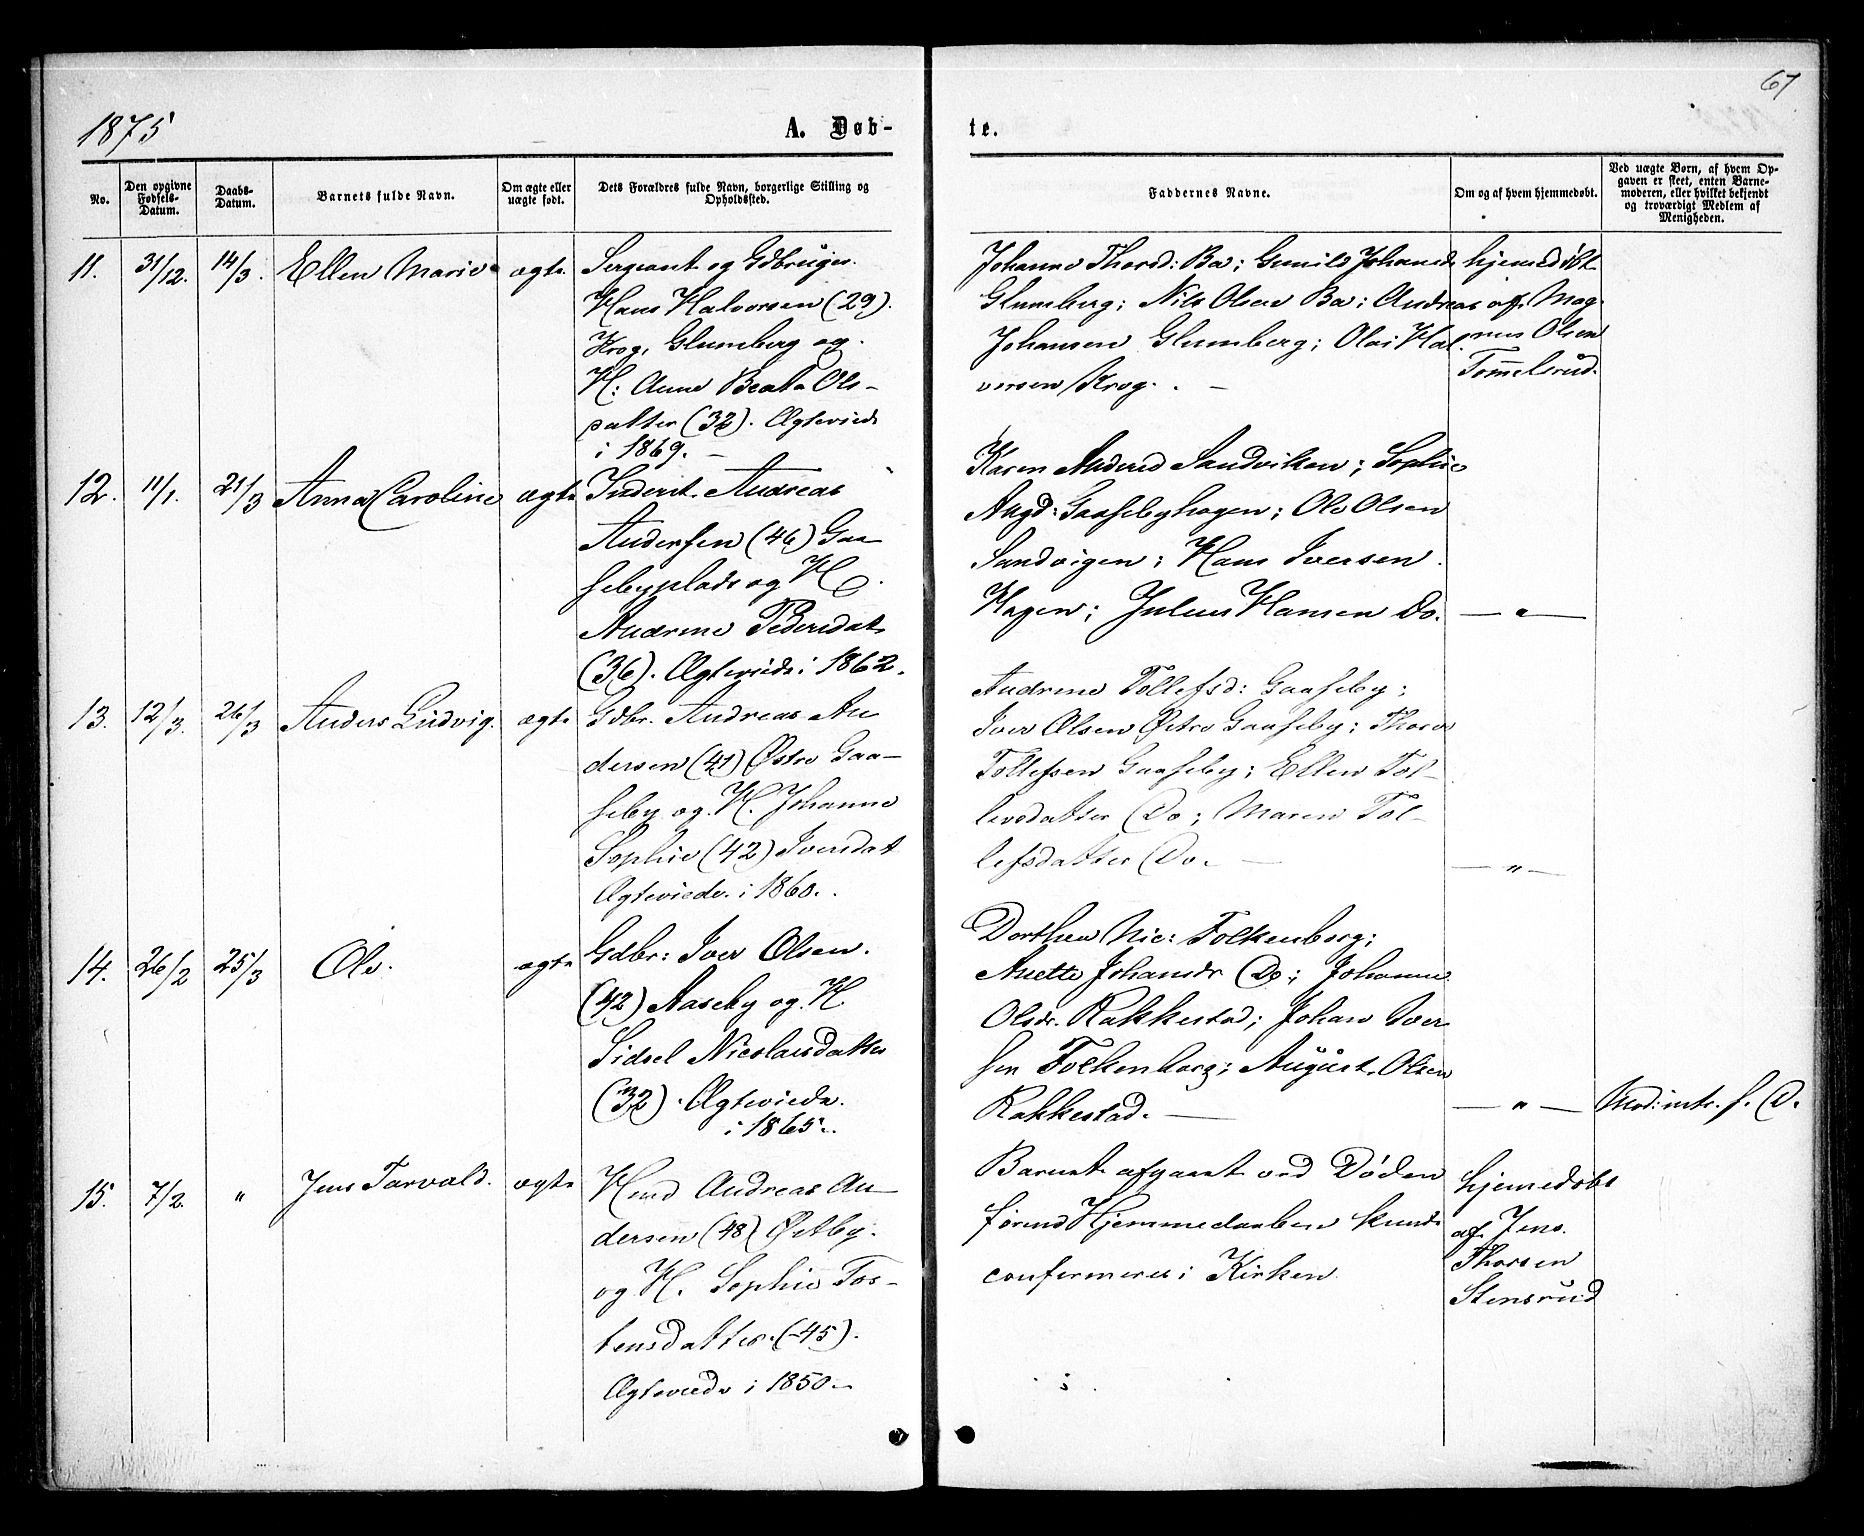 67
1875
A. Døb-
te.
No.
Den opgivne
Fødsels-
Datum.
Daabs-
Datum.
Barnets fulde Navn.
Om ægte eller
uægte født.
Dets Forældres fulde Navn, borgerlige Stilling og
Opholdssted.
Faddernes Navne.
Om og af hvem hjemmedøbt.
Ved uægte Børn, af hvem Op-
gaven er skeet, enten Barne-
moderen, eller hvilket bekjendt
og troværdigt Medlem af
Menigheden.
11.
31/12.
14/3.
Ellen Marie
ægte
Sergeant og Gdbruger
Hans Halvorsen (29).
Krog, Glumberg og
H: Anne Beate Ols-
datter (32). Ægteviede
i 1869.
Johanne Thorsd: Ba; Gunild Johansd
Glumberg; Nils Olsen Ba; Andreas
Johansen Glumberg; Olai Hal-
vorsen Krog.
hjemedøbt
af Mag-
nus Olsen
Tom̅elsrud.
12.
11/1.
21/3
Anna Caroline
ægte
Inderst. Andreas
Andersen (46) Gaa-
sebyplads og H.
Andrine Pedersdat
(36). Ægteviede i 1862.
Karen Andersd Sandviken; Sophie
Augd: Gaasebyhagen; Ole Olsen
Sandvigen; Hans Iversen
Hagen; Julius Hansen Do.
— " —
13.
12/3.
26/3
Anders Ludvig.
ægte
Gdbr. Andreas An
dersen (41) Østre Gaa-
seby og H. Johanne
Sophie (42) Iversdat
Ægteviede i 1860.
Andrine Tollefsd: Gaaseby;
Iver Olsen Østre Gaaseby; Thorvo
Tollefsen Gaaseby; Ellen Tol-
levsdatter Do; Maren Tol-
lefsdatter Do. —
— " —
14.
26/2
25/3
Ole.
ægte
Gdbr: Iver Olsen.
(42) Aaseby og H.
Sidsel Nicolaisdatter
(32). Ægteviede.
i 1865.
Dorthea Nic: Folkenborg;
Anette Johansdr Do; Johanne
Olsdr. Rakkestad; Johan Iver
sen Folkenborg; August Olsen
Rakkestad. —
— " —
Mod: intr. f. D.
15.
7/2.
"
Jens Torvald.
ægte
Hmd Andreas An
dersen (48) Østby
og H. Sophie Tos-
tensdatter (45).
Ægteviede i 1850
Barnet afgaaet ved Døden
førend Hjemmedaaben kunde
confermeres i Kirken.
hjemedøbt
af Jens
Thorsen
Stensrud